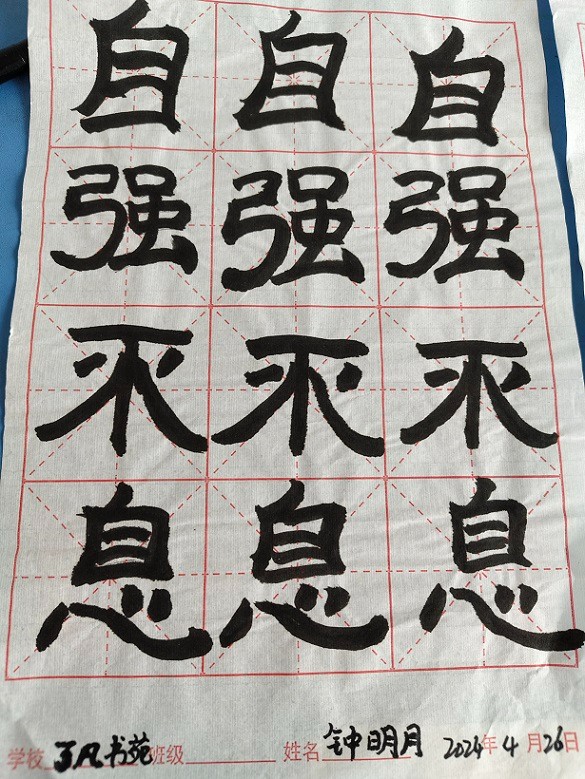 自自自
强强强
不不不
息息息
学校 了凡书苑 班级 姓名 钟明月 2024年4月26日